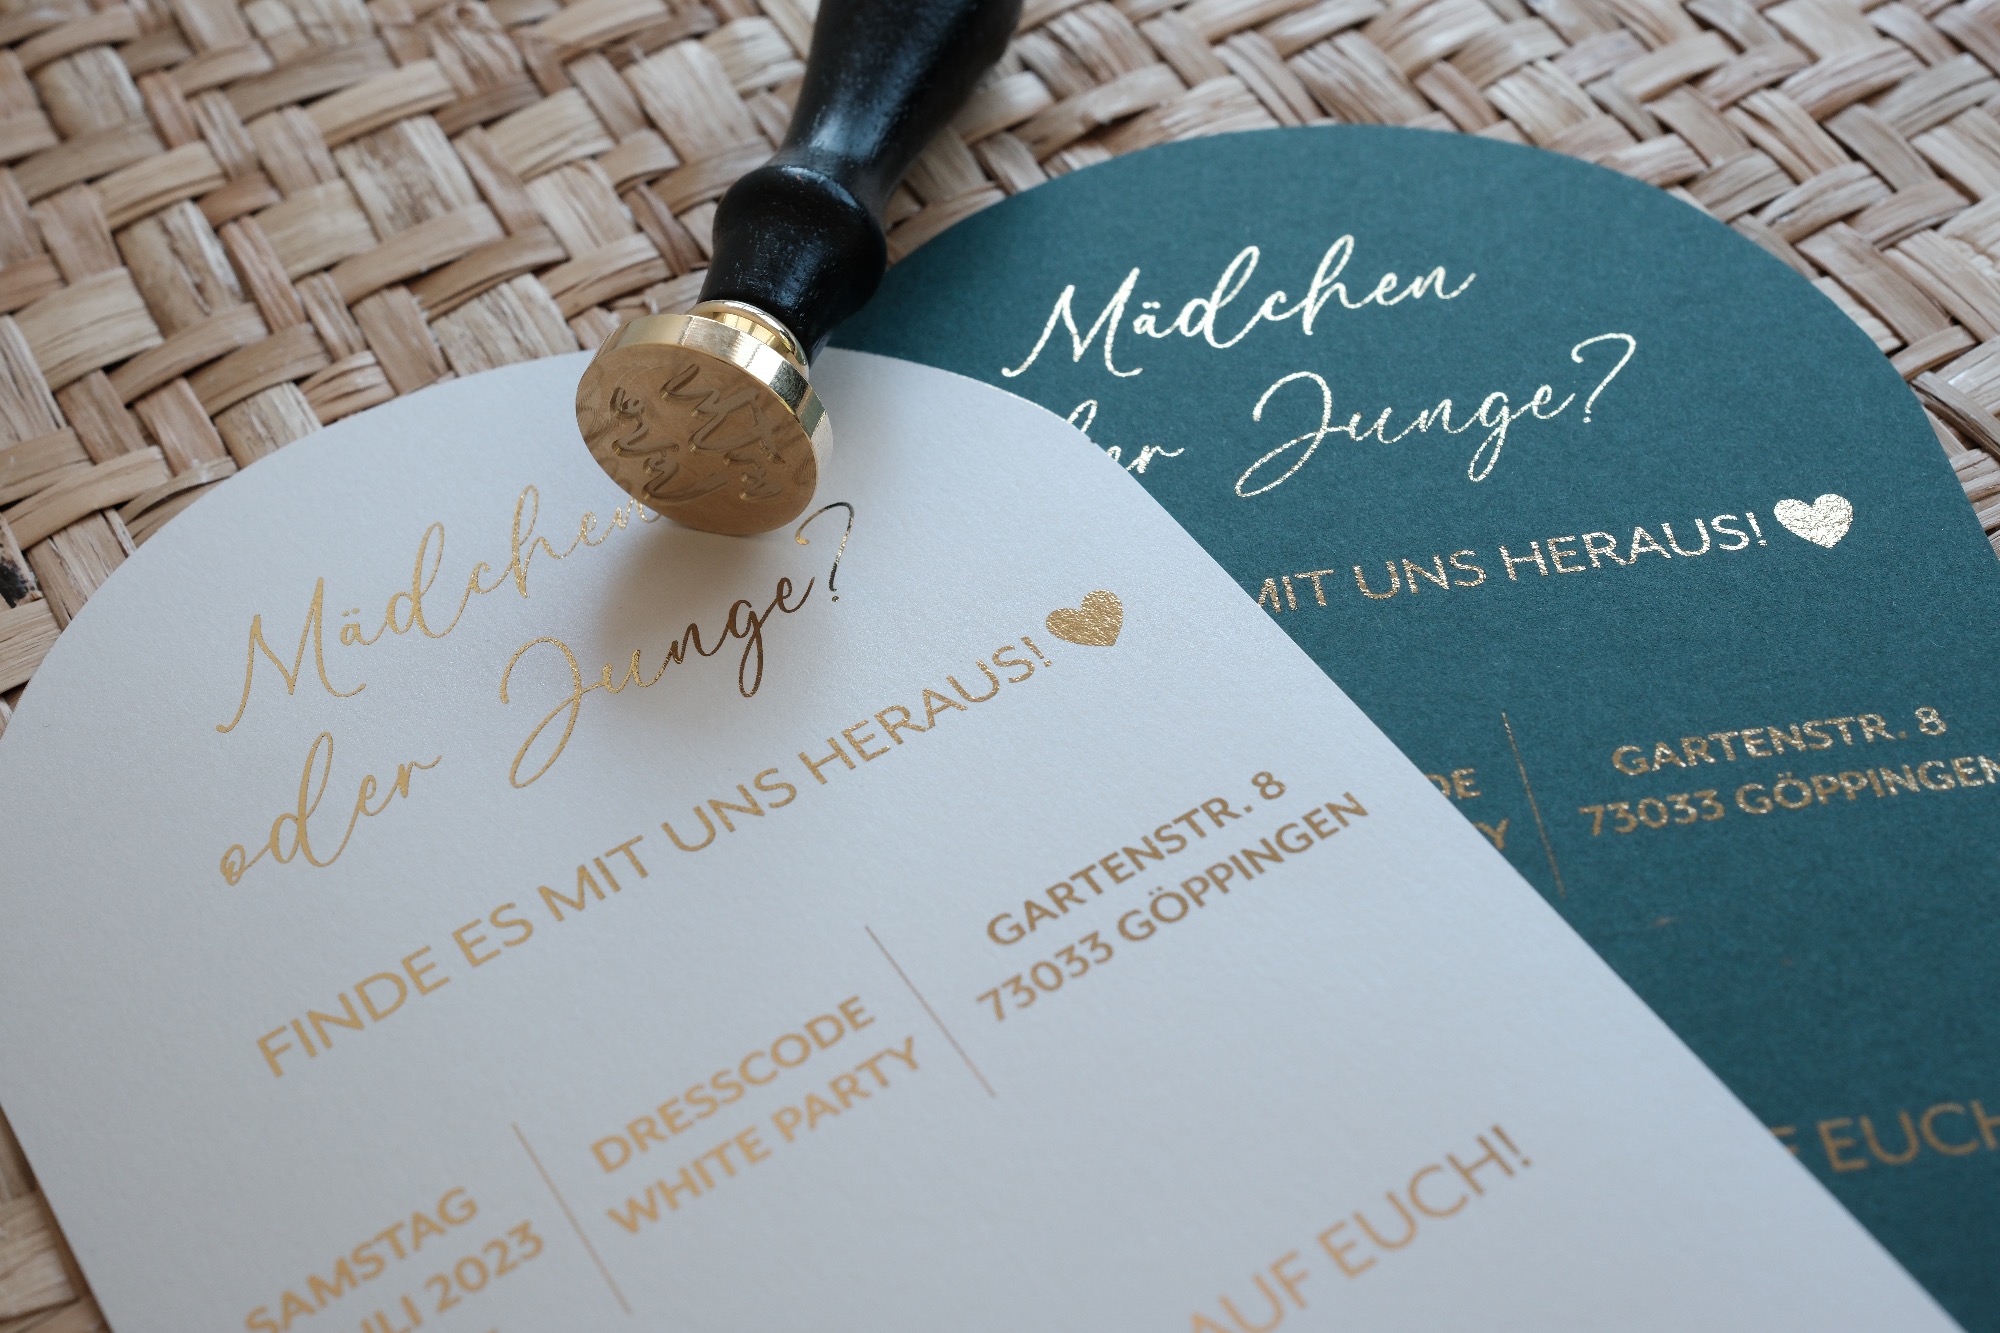 Mädchen
oder Junge?
FINDE ES MIT UNS HERAUS!
SAMSTAG
2023
DRESSCODE
WHITE PARTY
GARTENSTR. 8
73033 GÖPPINGEN
AUF EUCH!
Mädchen
Junge?
MIT UNS HERAUS!
GARTENSTR. 8
73033 GÖPPINGEN
EUCH